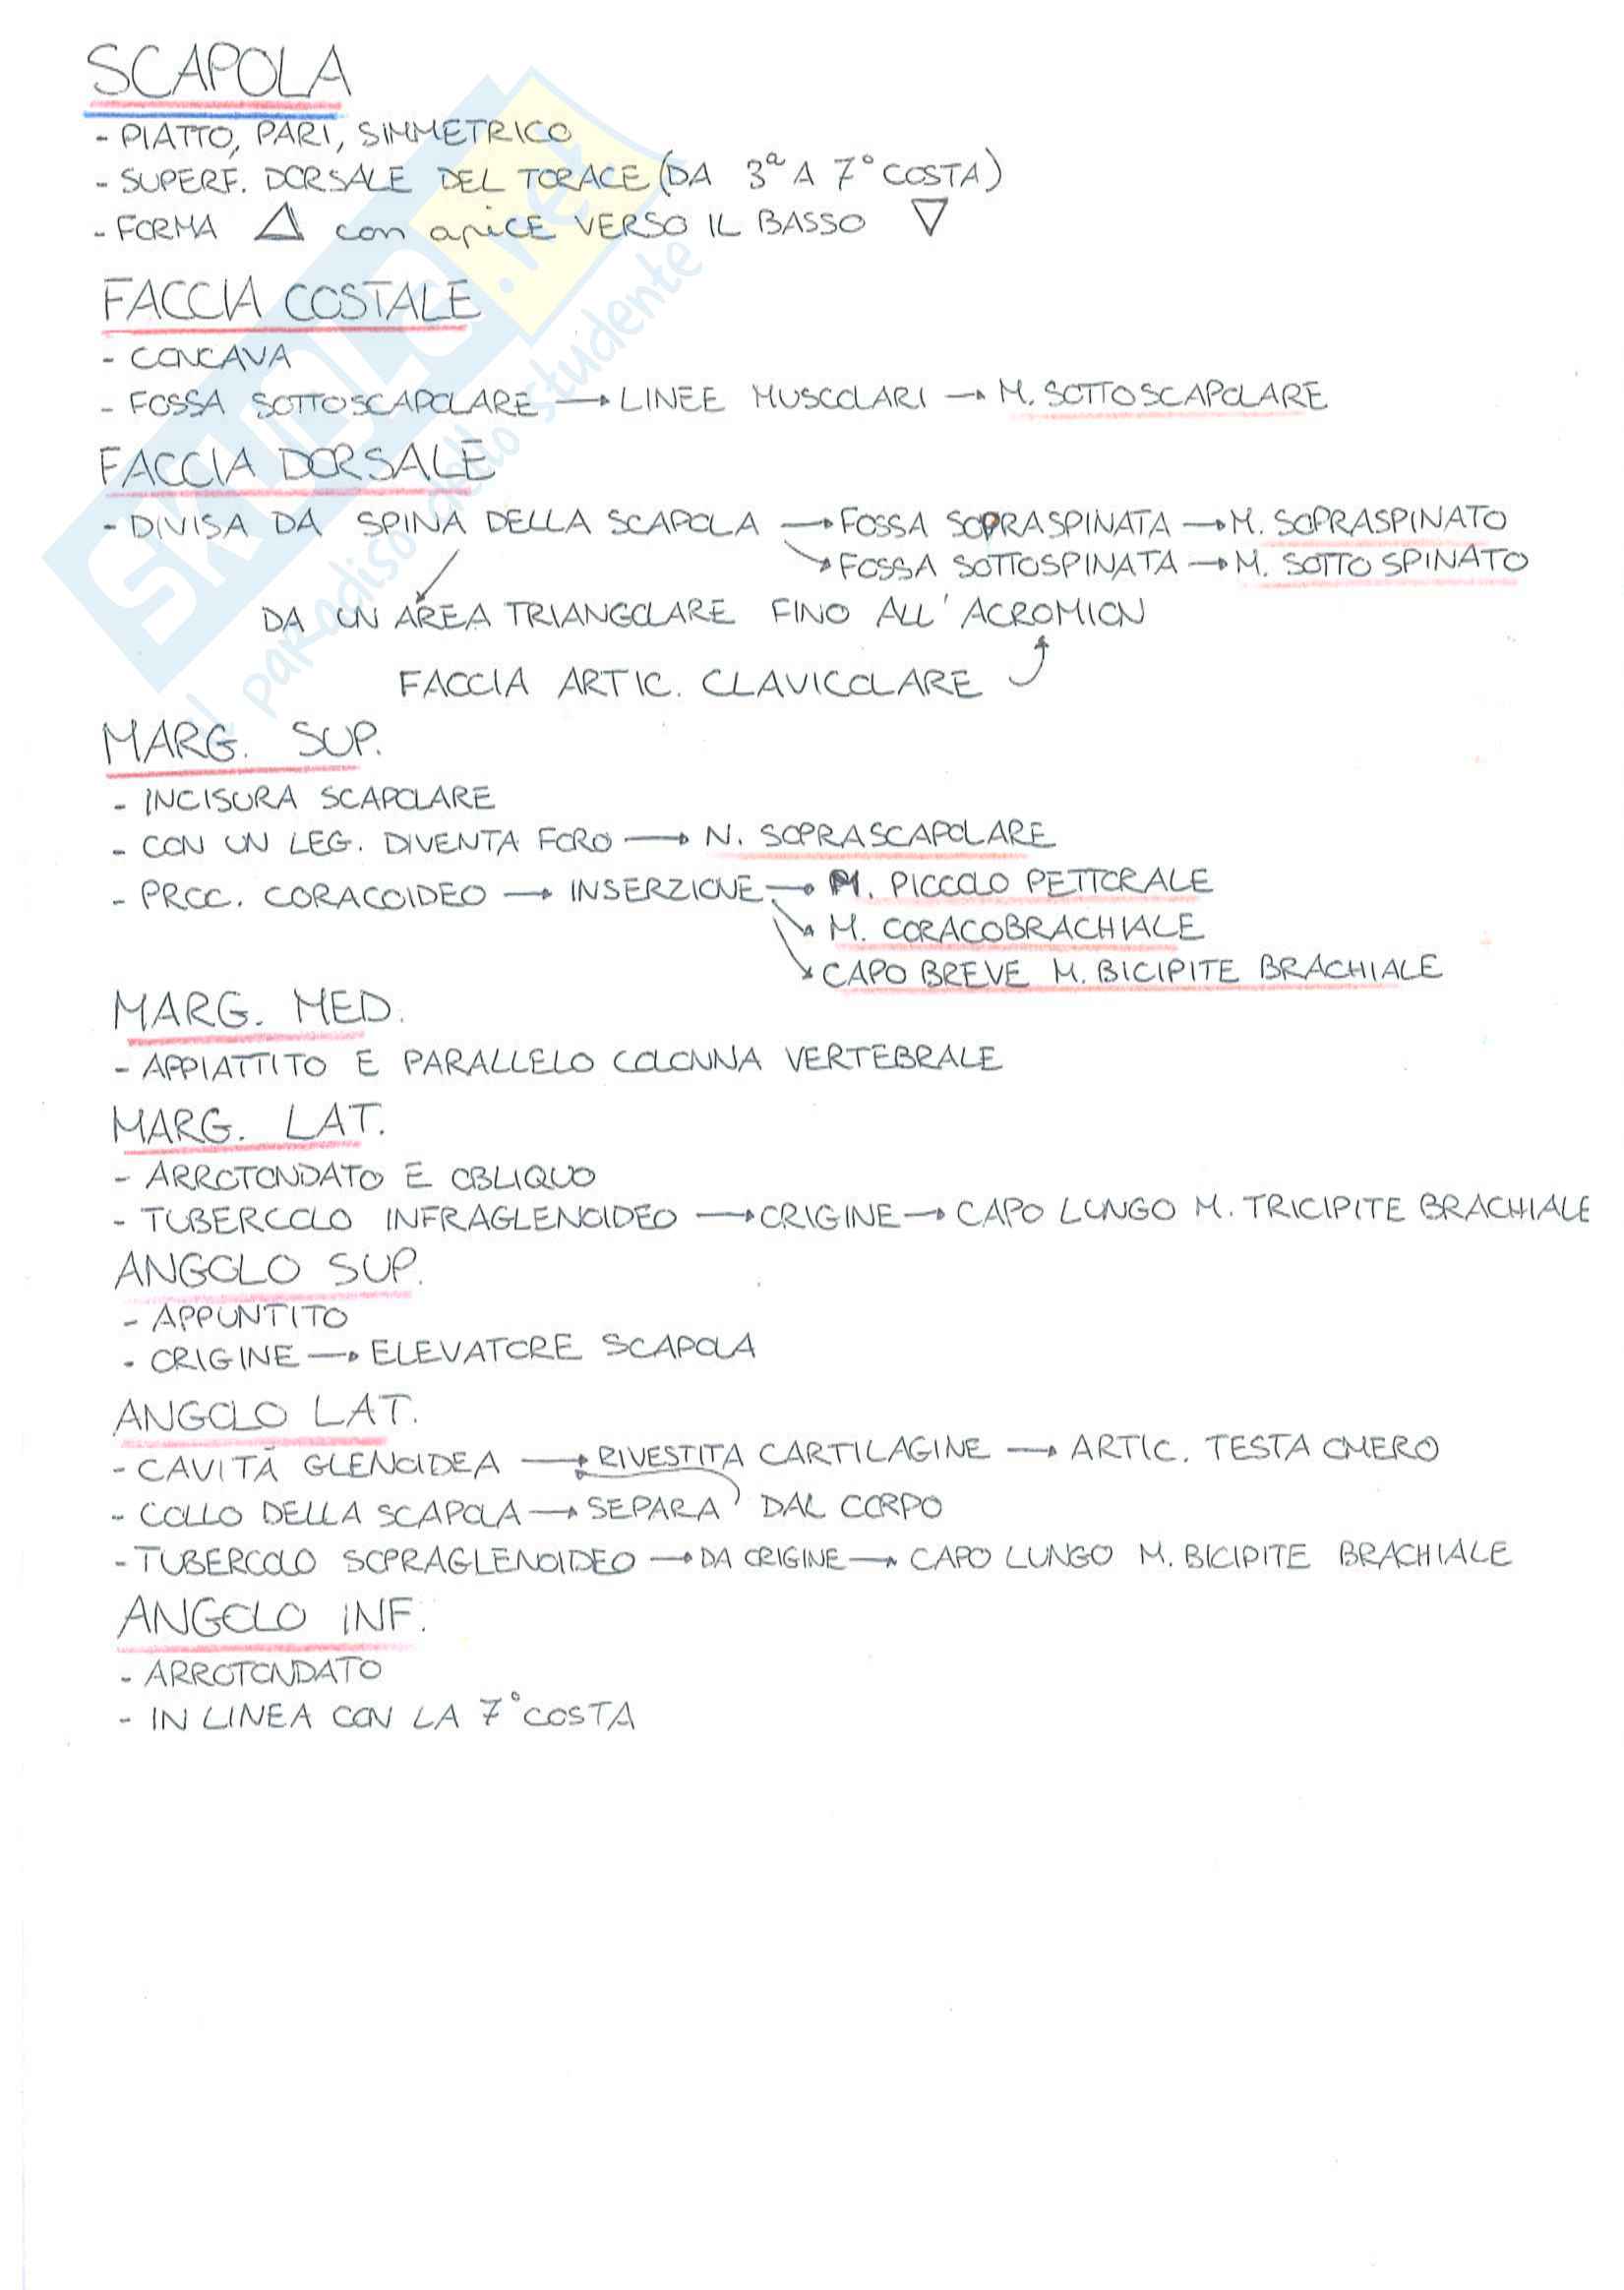 SCAPOLA
- PIATTO, PARI, SIMMETRICO
- SUPERF. DORSALE DEL TORACE (DA 3ª A 7° COSTA)
- FORMA △ con apice VERSO IL BASSO ▽
FACCIA COSTALE
- CONCAVA
- FOSSA SOTTOSCAPOLARE → LINEE MUSCOLARI → M. SOTTOSCAPOLARE
FACCIA DORSALE
- DIVISA DA SPINA DELLA SCAPOLA → FOSSA SOPRASPINATA → M. SOPRASPINATO
↘ FOSSA SOTTOSPINATA → M. SOTTO SPINATO
DA UN AREA TRIANGOLARE FINO ALL' ACROMION
FACCIA ARTIC. CLAVICOLARE
MARG. SUP.
- INCISURA SCAPOLARE
- CON UN LEG. DIVENTA FORO → N. SOPRASCAPOLARE
- PROC. CORACOIDEO → INSERZIONE → M. PICCOLO PETTORALE
↘ M. CORACOBRACHIALE
↘ CAPO BREVE M. BICIPITE BRACHIALE
MARG. MED.
- APPIATTITO E PARALLELO COLONNA VERTEBRALE
MARG. LAT.
- ARROTONDATO E OBLIQUO
- TUBERCOLO INFRAGLENOIDEO → ORIGINE → CAPO LUNGO M. TRICIPITE BRACHIALE
ANGOLO SUP.
- APPUNTITO
- ORIGINE → ELEVATORE SCAPOLA
ANGOLO LAT.
- CAVITÀ GLENOIDEA → RIVESTITA CARTILAGINE → ARTIC. TESTA OMERO
- COLLO DELLA SCAPOLA → SEPARA DAL CORPO
- TUBERCOLO SOPRAGLENOIDEO → DA ORIGINE → CAPO LUNGO M. BICIPITE BRACHIALE
ANGOLO INF.
- ARROTONDATO
- IN LINEA CON LA 7° COSTA
SKUOLA.net
il paradiso dello studente